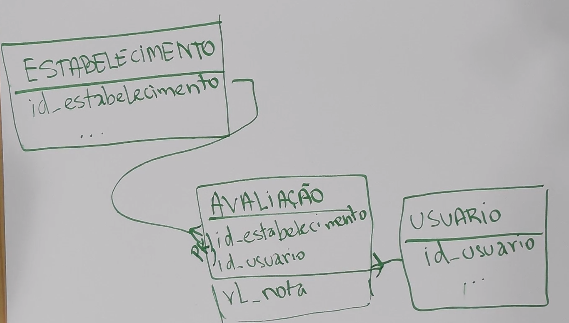 ESTABELECIMENTO
id_estabelecimento
...
AVALIAÇÃO
PK id_estabelecimento
id_usuario
vL_nota
USUARIO
id_usuario
...